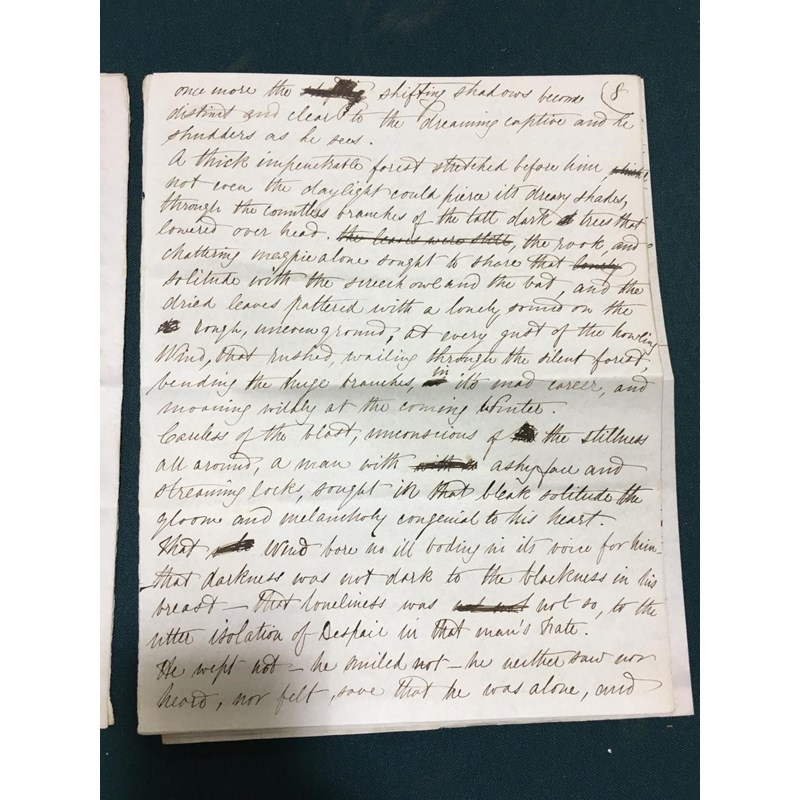 once more the shifting shadows become (8
distinct and clear to the dreaming captive and he
shudders as he sees.
A thick impenetrable forest stretched before him
not even the daylight could pierce its dreary shades,
through the countless branches of the tall dark trees that
lowered over head. the leaves were still, the rook and
chattering magpie alone sought to share that lonely
solitude with the screech owl and the bat, and the
dried leaves pattered with a lonely sound on the
rough, uneven ground, at every gust of the howling
Wind, that rushed, wailing through the silent forest,
bending the huge branches, in it's mad career, and
moaning wildly at the coming Winter.
Careless of the blast, unconscious of the stillness
all around, a man with ashy face and
streaming locks, sought in that bleak solitude the
gloom and melancholy congenial to his heart.
That Wind bore no ill boding in its voice for him—
that darkness was not dark to the blackness in his
breast — That loneliness was not so, to the
utter isolation of Despair in that man's Fate.
He wept not — he smiled not — he neither saw nor
heard, nor felt, save that he was alone, and